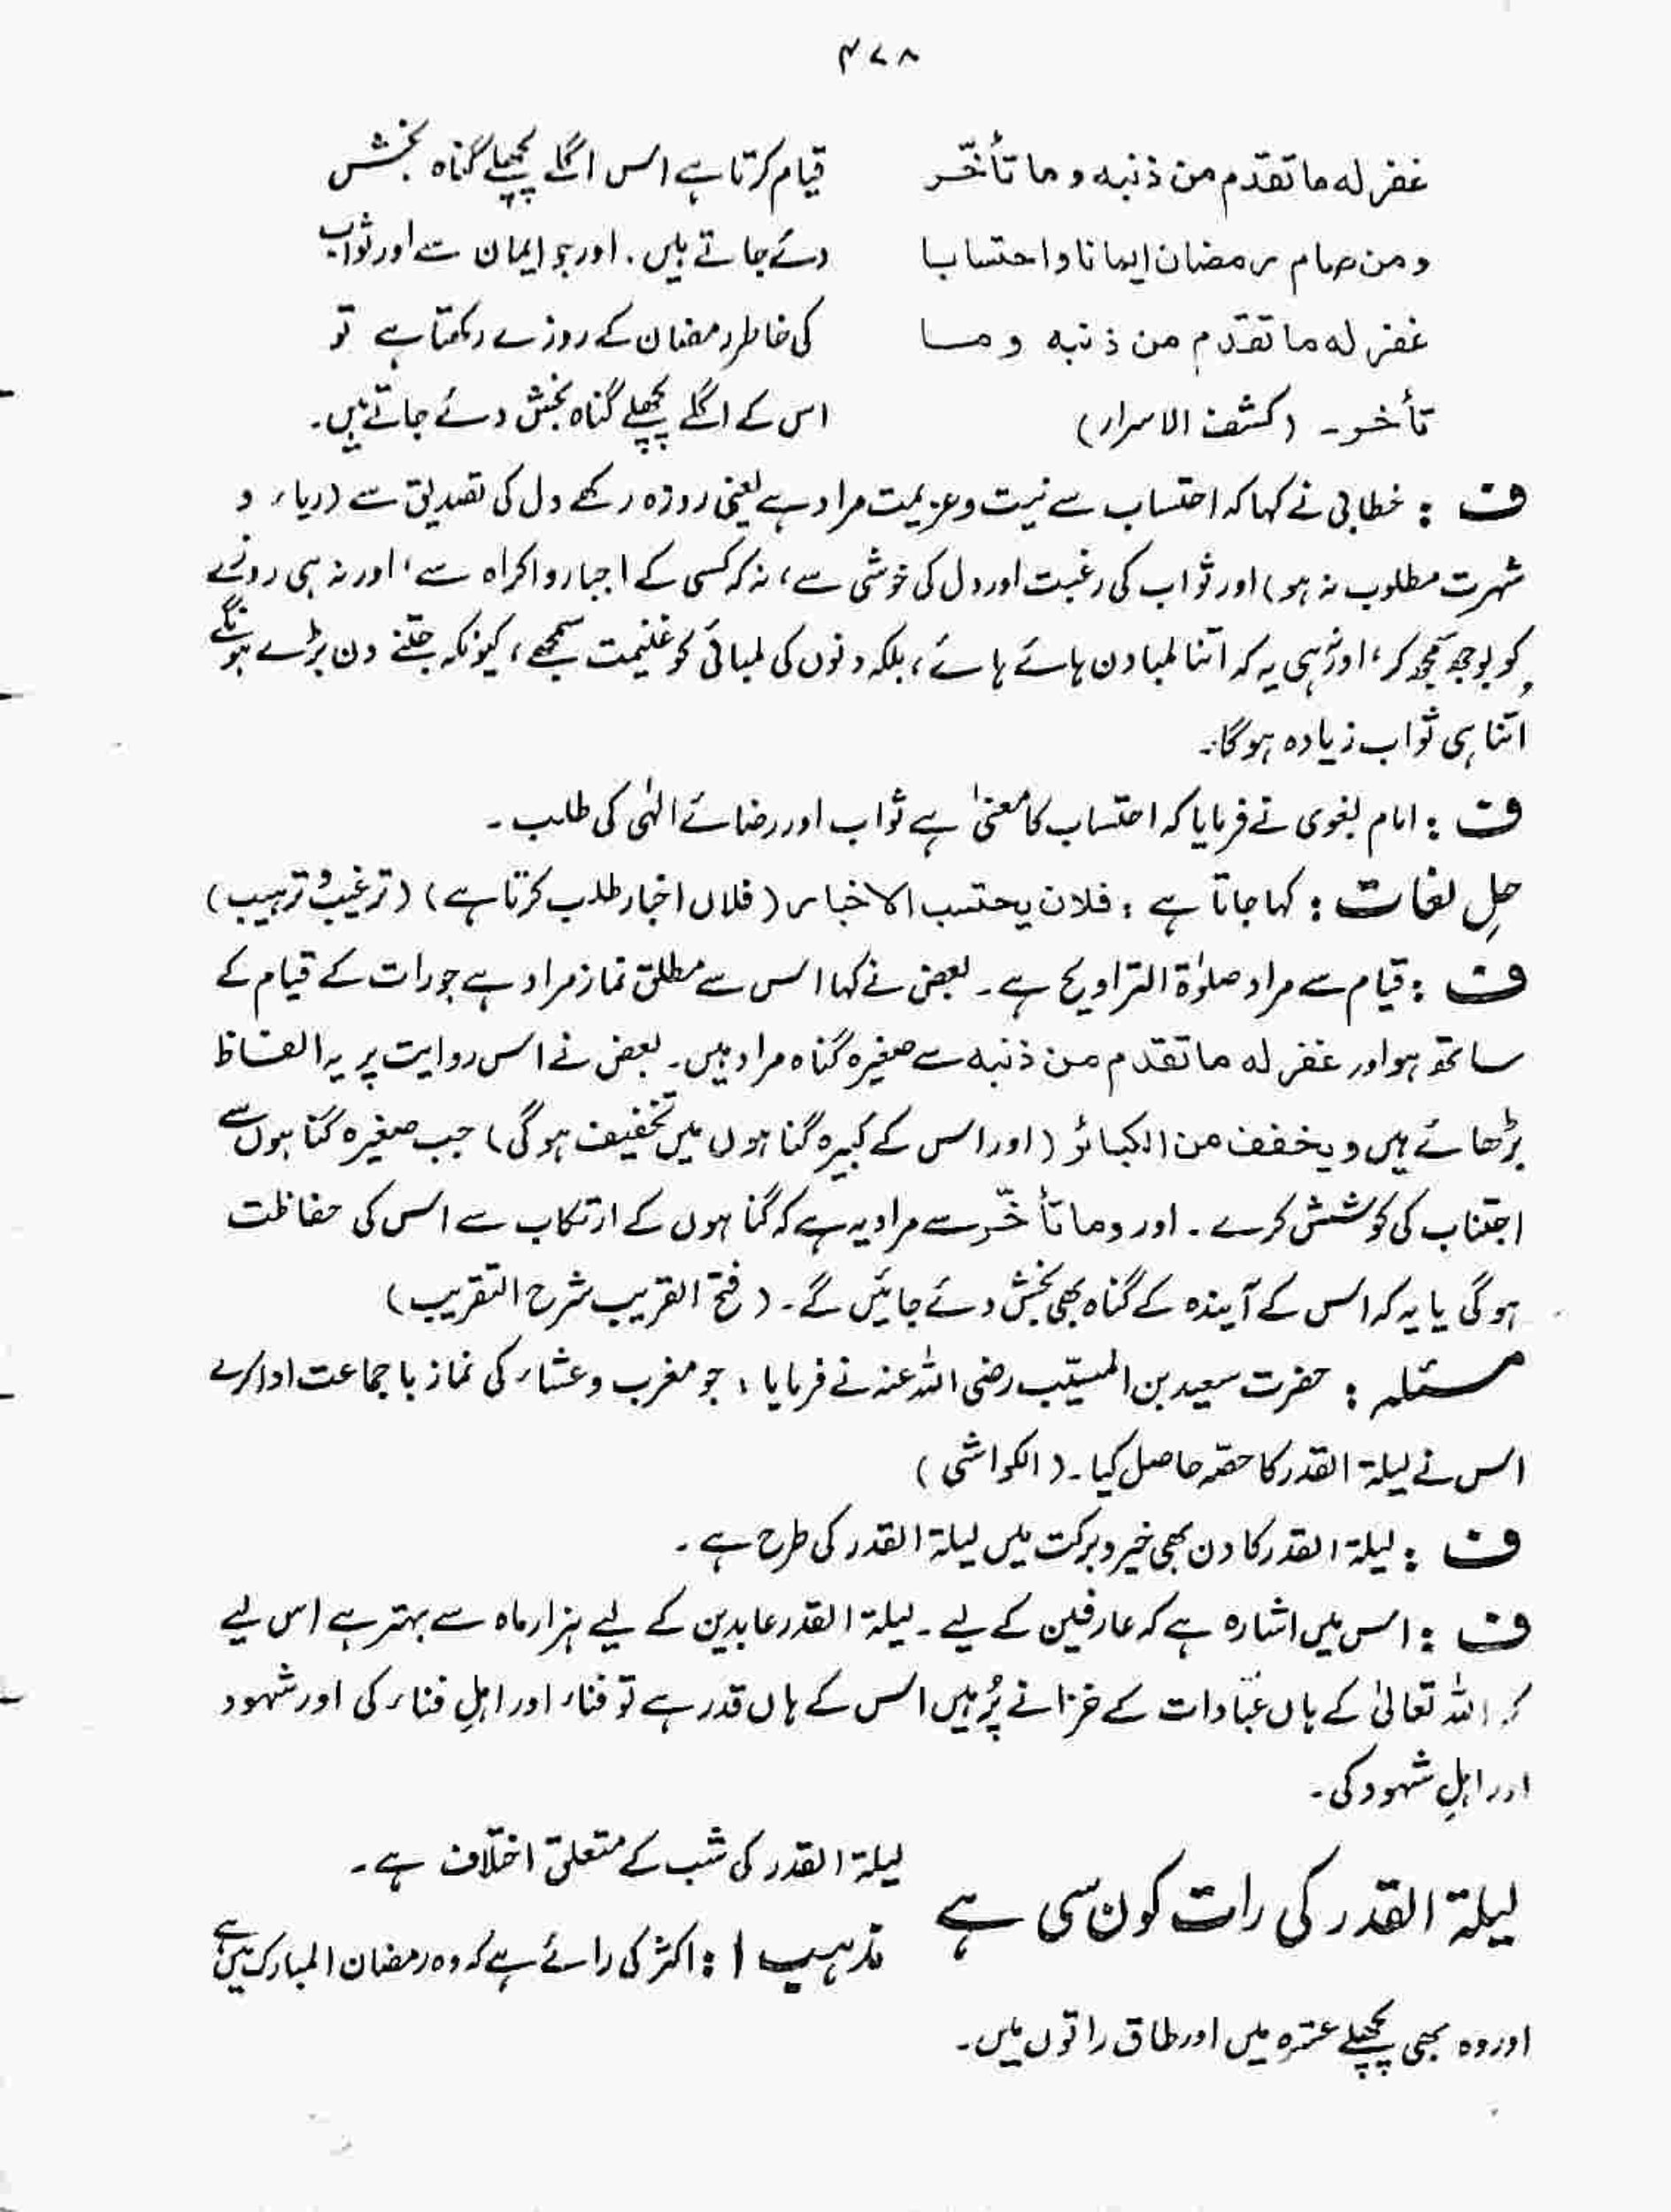 ۴۷۸
غفر له ما تقدّم من ذنبه و ما تأخّر
قیام کرتا ہے اس اگلے پچھلے گناہ بخش
و من صام رمضان ایمانا و احتسابا
دئے جاتے ہیں ۔ اور جو ایمان سے اور ثواب
غفر له ما تقدم من ذنبه و ما
کی خاطر رمضان کے روزے رکھتا ہے تو
تأخر ۔ (کشف الاسرار)
اس کے اگلے پچھلے گناہ بخش دئے جاتے ہیں ۔
ف : خطابی نے کہا کہ احتساب سے نیت و عزیمت مراد ہے یعنی روزہ رکھے دل کی تصدیق سے (ریاء و
شہرت مطلوب نہ ہو) اور ثواب کی رغبت اور دل کی خوشی سے ، نہ کہ کسی کے اجبار و اکراہ سے ، اور نہ ہی روزے
کو بوجھ سمجھ کر ، اور نہ ہی یہ کہ اتنا لمبا دن ہائے ہائے ، بلکہ دنوں کی لمبائی کو غنیمت سمجھے ، کیونکہ جتنے دن بڑے ہونگے
اتنا ہی ثواب زیادہ ہوگا ۔
ف : امام بغوی نے فرمایا کہ احتساب کا معنیٰ ہے ثواب اور رضائے الٰہی کی طلب ۔
حلِ لغات : کہا جاتا ہے : فلان یحتسب الاخبار (فلاں اخبار طلب کرتا ہے) (ترغیب و ترہیب)
ف : قیام سے مراد صلوٰۃ التراویح ہے ۔ بعض نے کہا اس سے مطلق نماز مراد ہے جو رات کے قیام کے
ساتھ ہو اور غفر له ما تقدم من ذنبه سے صغیرہ گناہ مراد ہیں ۔ بعض نے اس روایت پر یہ الفاظ
بڑھائے ہیں و یخفف من الکبائر (اور اس کے کبیرہ گناہوں میں تخفیف ہوگی) جب صغیرہ گناہوں سے
اجتناب کی کوشش کرے ۔ اور و ما تأخّر سے مراد یہ ہے کہ گناہوں کے ارتکاب سے اس کی حفاظت
ہوگی یا یہ کہ اس کے آیندہ کے گناہ بھی بخش دئے جائیں گے ۔ (فتح القریب شرح التقریب)
مسئلہ : حضرت سعید بن المسیّب رضی اللہ عنہ نے فرمایا : جو مغرب و عشاء کی نماز با جماعت ادا کرے
اس نے لیلۃ القدر کا حصّہ حاصل کیا ۔ (الکواشی)
ف : لیلۃ القدر کا دن بھی خیر و برکت میں لیلۃ القدر کی طرح ہے ۔
ف : اس میں اشارہ ہے کہ عارفین کے لیے ۔ لیلۃ القدر عابدین کے لیے ہزار ماہ سے بہتر ہے اس لیے
کہ اللہ تعالیٰ کے ہاں عبادات کے خزانے پُر ہیں اس کے ہاں قدر ہے تو فناء اور اہلِ فناء کی اور شہود
اور اہلِ شہود کی ۔
لیلۃ القدر کی رات کون سی ہے
لیلۃ القدر کی شب کے متعلق اختلاف ہے ۔
مذہب ۱ : اکثر کی رائے ہے کہ وہ رمضان المبارک میں ہے
اور وہ بھی پچھلے عشرہ میں اور طاق راتوں میں ۔